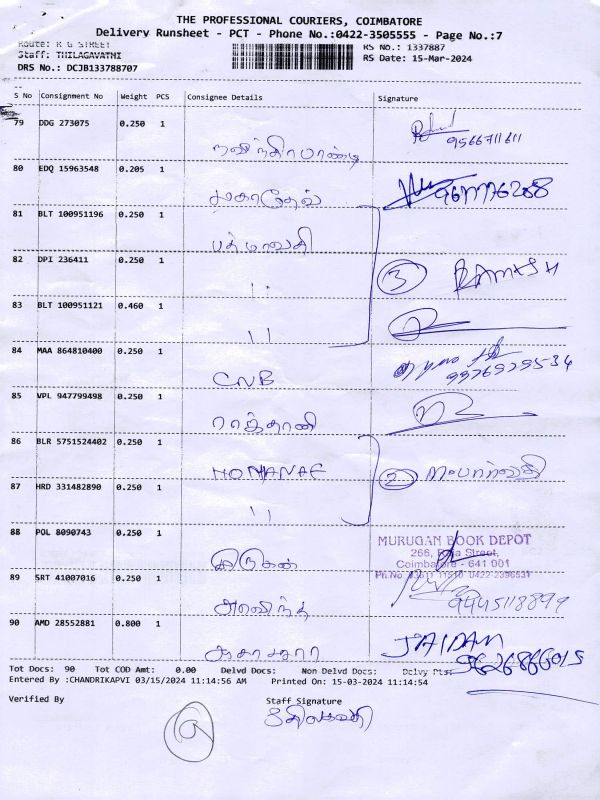 THE PROFESSIONAL COURIERS, COIMBATORE
Delivery Runsheet - PCT - Phone No.:0422-3505555 - Page No.:7
Route: R G STREET
RS No.: 1337887
Staff: THILAGAVATHI
RS Date: 15-Mar-2024
DRS No.: DCJB133788707
S No Consignment No Weight PCS Consignee Details Signature
79 DDG 273075 0.250 1
9566711611
80 EDQ 15963548 0.205 1
மகாதேவ்
81 BLT 100951196 0.250 1
பத்மாவதி
82 DPI 236411 0.250 1
" 3 RAMESH
83 BLT 100951121 0.460 1
"
84 MAA 864810400 0.250 1
CNB
85 VPL 947799498 0.250 1
ராத்தானி
86 BLR 5751524402 0.250 1
2
87 HRD 331482890 0.250 1
"
88 POL 8090743 0.250 1
MURUGAN BOOK DEPOT
266, Raja Street,
Coimbatore - 641 001
89 SRT 41007016 0.250 1
அரவிந்த் 9445118899
90 AMD 28552881 0.800 1
JAIDAM
Tot Docs: 90 Tot COD Amt: 0.00 Delvd Docs: Non Delvd Docs: Delvy Pts:
Entered By :CHANDRIKAPVI 03/15/2024 11:14:56 AM Printed On: 15-03-2024 11:14:54
Verified By Staff Signature
திலகவதி